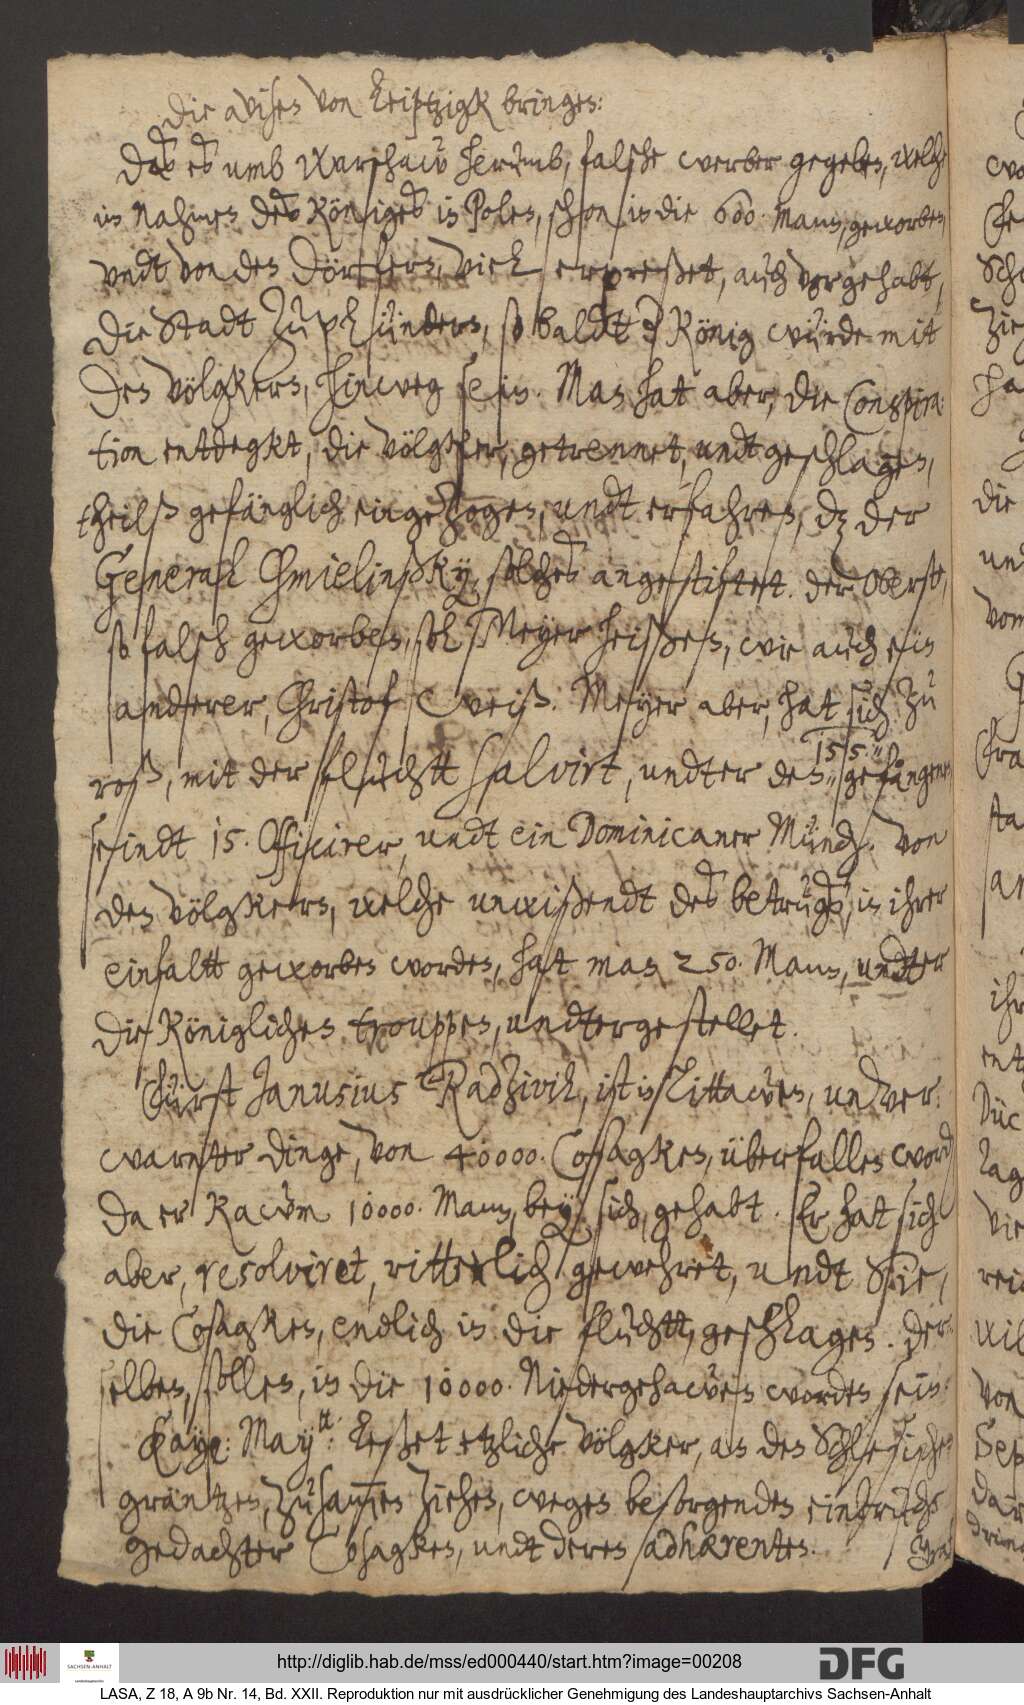 Die avisen von Leiptzigk bringen:
Daß es umb Warschaw herumb, falsche werber gegeben, welche
in Nahmen deß Königes in Polen, schon in die 600. Mann, geworben,
undt von den Dörffern, viel erpreßet, auch vorgehabt,
die Stadt zu plündern, so baldt der König würde mit
den völgkern, hinweg sein. Man hat aber, die Conspira-
tion entdegkt, die völgker, getrennet, undt geschlagen,
theilß gefänglich eingezogen, undt erfahren, dz der
General Chmielinßky, solches angestiftet. der Oberste,
so falsch geworben, soll Meyer heißen, wie auch ein
anderer, Christof Weiß. Meyer aber, hat sich zu
roß, mit der fluchtt salvirt, undter den 155. gefangenen
seindt 15. Officirer, undt ein Dominicaner Münch. Von
den völgkern, welche unwißendt deß betrugs, in ihrer
einfaltt geworben worden, hat man 250. Mann, undter
die Königlichen trouppen, undtergestellet.
Fürst Janusius Radzivil, ist in Littawen, unver-
warnter dinge, von 40000. Cosagken, überfallen word
da er kaum 10000. Mann, bey sich, gehabt. Er hat sich
aber, resolviret, ritterlich gewehret, undt Sie,
die Cosagken, endlich in die fluchtt, geschlagen. Der-
selben, sollen, in die 10000. Niedergehawen worden sein.
Kayß: May.tt: leßet etzliche völgker, an den Schlesischen
gräntzen, zusammen ziehen, wegen besorgenden einbruchs
gedachter Cosagken, undt deren adhærenten.
http://diglib.hab.de/mss/ed000440/start.htm?image=00208
SACHSEN-ANHALT
DFG
LASA, Z 18, A 9b Nr. 14, Bd. XXII. Reproduktion nur mit ausdrücklicher Genehmigung des Landeshauptarchivs Sachsen-Anhalt